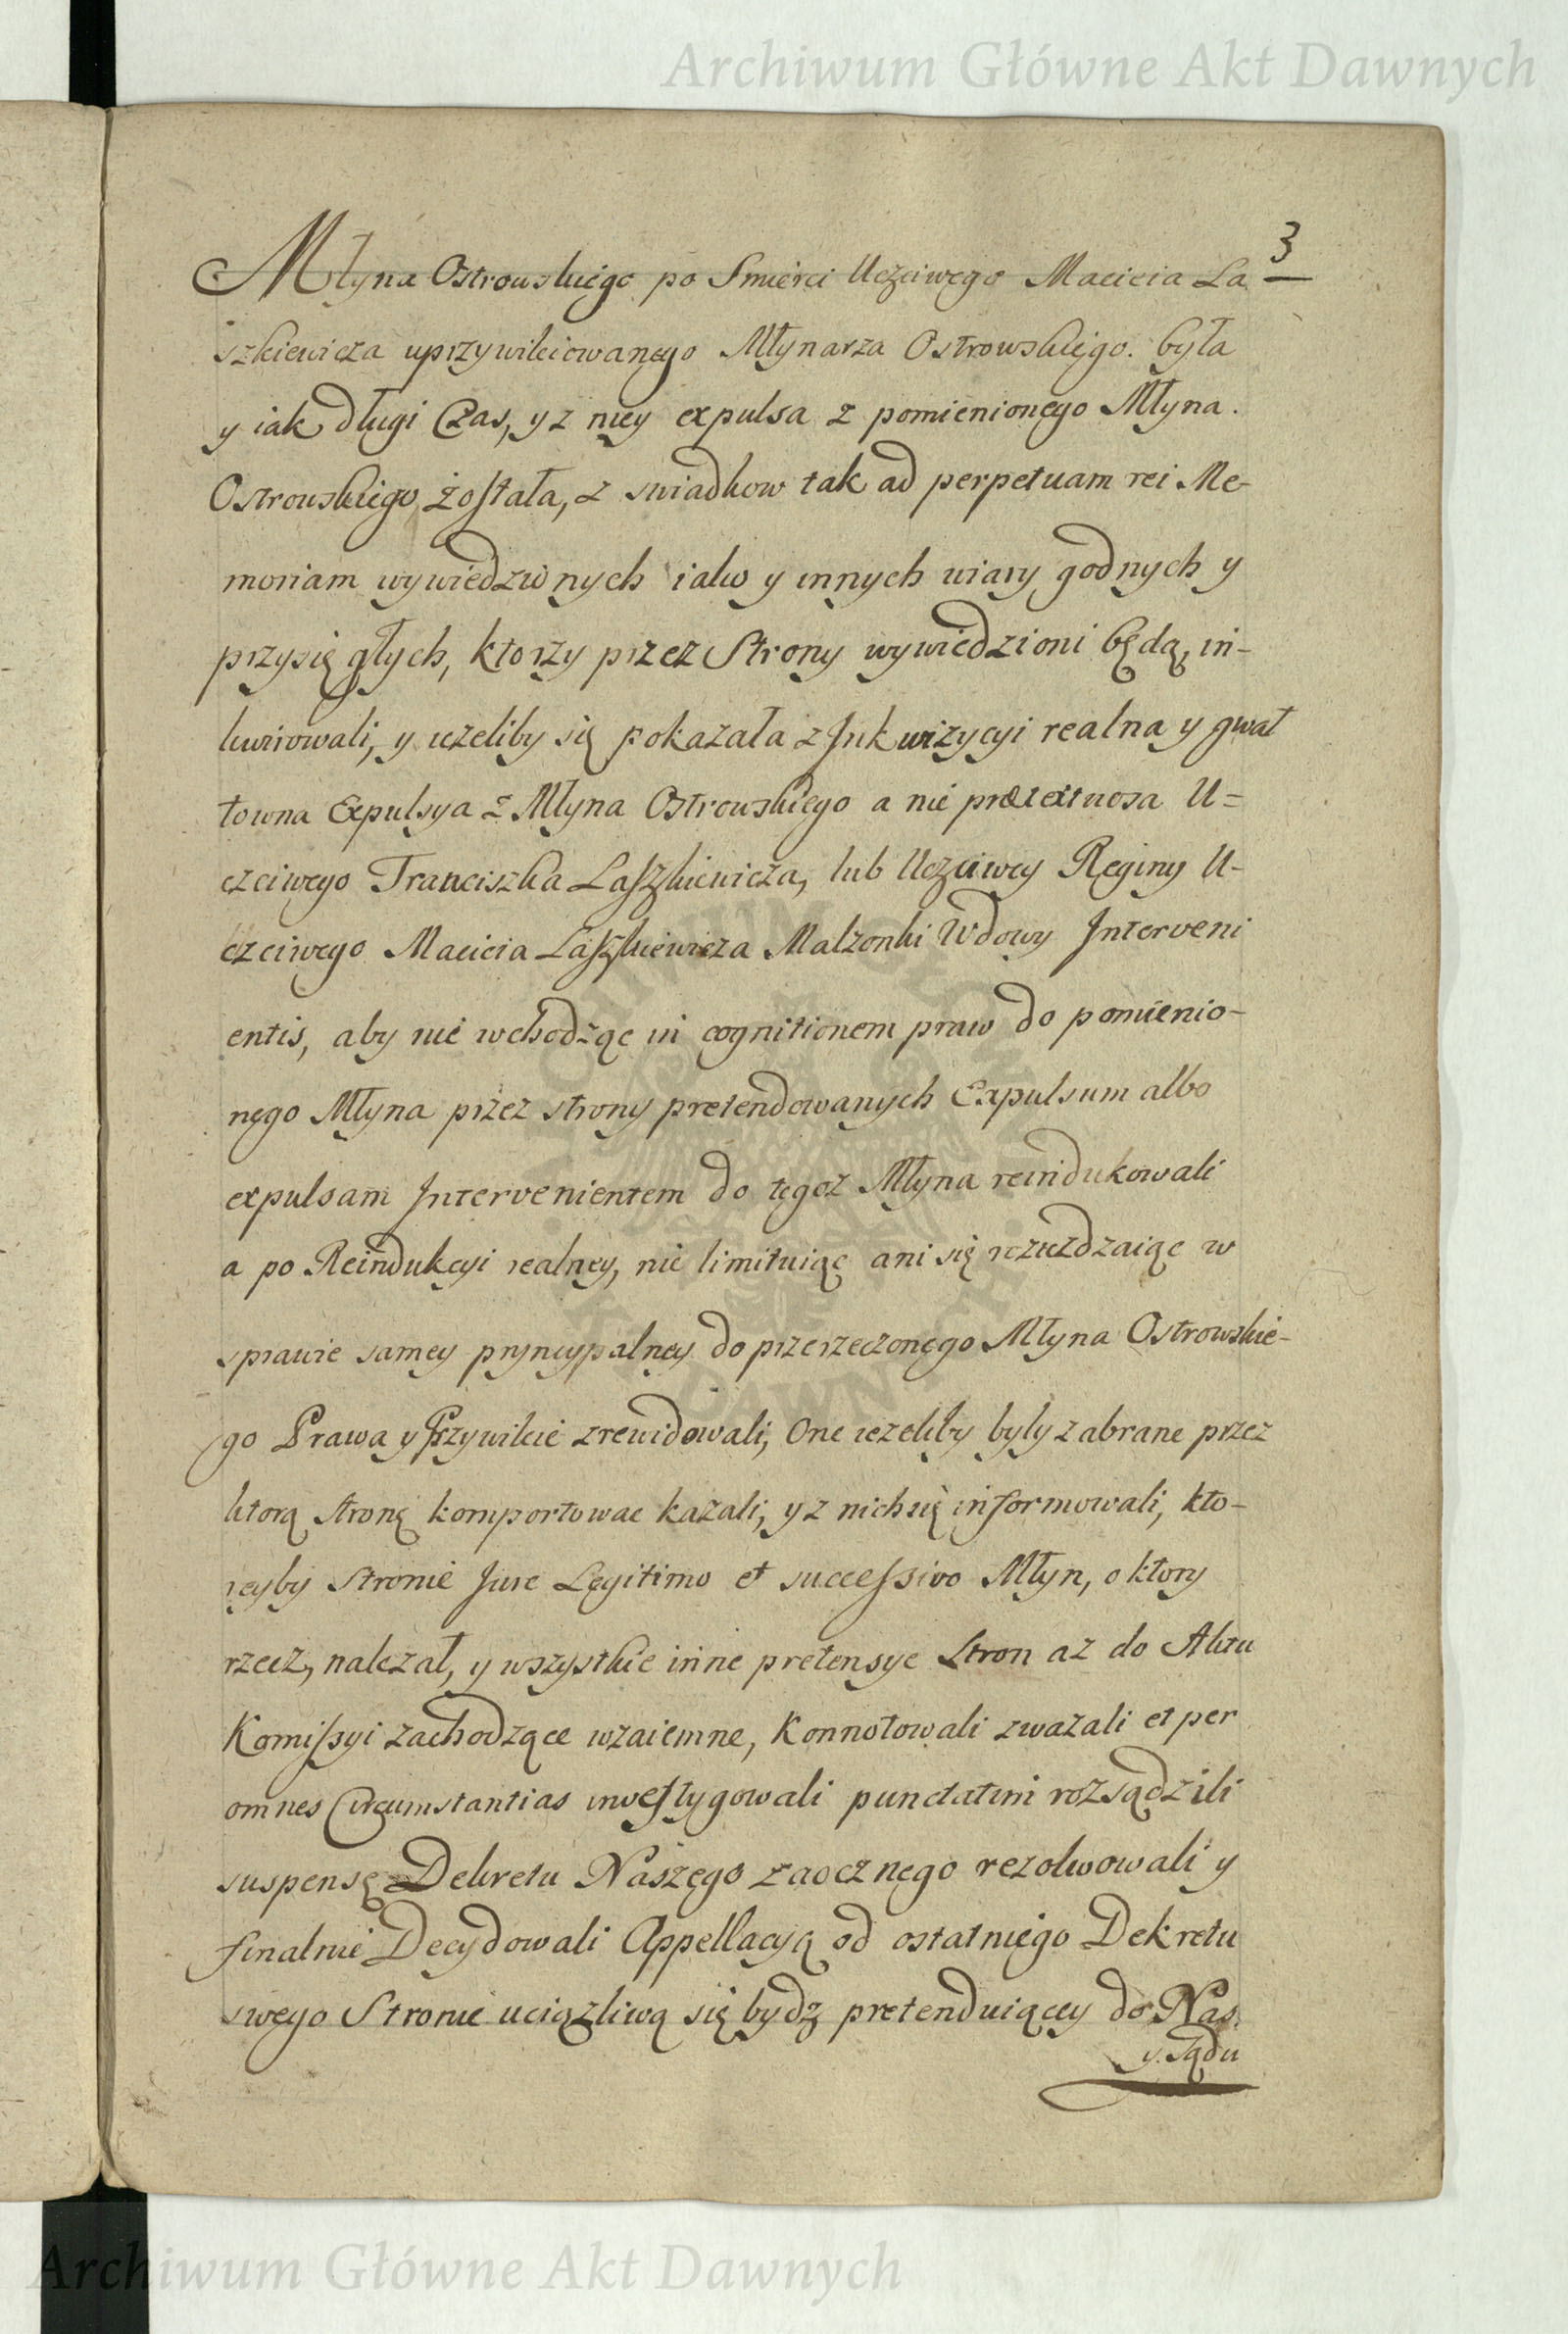 Archiwum Główne Akt Dawnych
3
Młyna Ostrowskiego po Smierci Uczciwego Macieia La
szkiewicza uprzywileiowanego Młynarza Ostrowskiego. była
y iak długi Czas, y z niey expulsa z pomienionego Młyna.
Ostrowskiego została, z swiadkow tak ad perpetuam rei Me-
moriam wywiedzionych iako y innych wiary godnych y
przysięgłych, ktorzy przez Strony wywiedzioni będą, in-
kwirowali, y ieżeliby się pokazała z Inkwizycyi realna y gwał
towna Expulsya z Młyna Ostrowskiego a nie prætextuosa U=
czciwego Franciszka Laszkiewicza, lub Uczciwey Reginy U-
czciwego Macieia Laszkiewicza Malzonki Wdowy Interveni
entis, aby nie wchodząc in cognitionem praw do pomienio-
nego Młyna przez strony pretendowanych Expulsum albo
expulsam Intervenientem do tegoz Młyna reindukowali
a po Reindukcyi realney, nie limituiąc ani się rozieżdzaiąc w
sprawie samey pryncypalney do przerzeczonego Młyna Ostrowskie-
go Prawa y Przywileie zrewidowali, One ieżeliby były zabrane przez
ktorą stronę komportowac kazali, y z nich się informowali, kto-
reyby Stronie Jure Legitimo et successivo Młyn, o ktory
rzecz, nalezał, y wszystkie inne pretensye Stron az do Aktu
Komissyi zachodzące wzaiemne, Konnotowali zważali et per
omnes Circumstantias inwestygowali punctatim rozsądzili
suspensę Dekretu Naszego zaocznego rezolwowali y
finalnie Decydowali Appellacyą od ostatniego Dekretu
swego Stronie uciązliwą się bydz pretenduiącey do Nas.
y. Sądu
Archiwum Główne Akt Dawnych